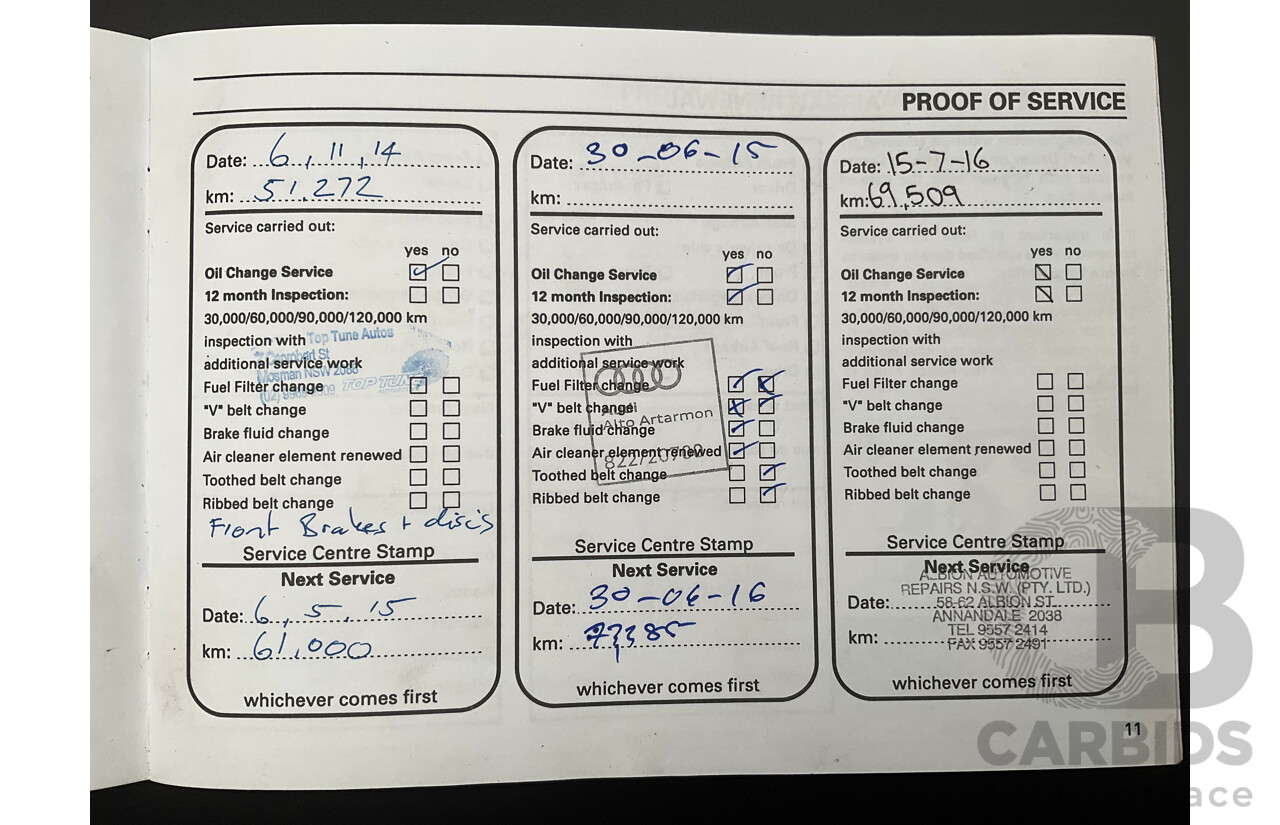 PROOF OF SERVICE
Date: 6, 11, 14
km: 51,272
Service carried out:
yes no
Oil Change Service
12 month Inspection:
30,000/60,000/90,000/120,000 km
inspection with
Top Tune Autos
additional service work
Mosman NSW 2088
Fuel Filter change
TOP TUNE
"V" belt change
Brake fluid change
Air cleaner element renewed
Toothed belt change
Ribbed belt change
Front Brakes + discs
Service Centre Stamp
Next Service
Date: 6, 5, 15
km: 61,000
whichever comes first
Date: 30-06-15
km:
Service carried out:
yes no
Oil Change Service
12 month Inspection:
30,000/60,000/90,000/120,000 km
inspection with
additional service work
Fuel Filter change
"V" belt change
Audi
Alto Artarmon
Brake fluid change
Air cleaner element renewed
Toothed belt change
Ribbed belt change
Service Centre Stamp
Next Service
Date: 30-06-16
km:
whichever comes first
Date: 15-7-16
km: 69,509
Service carried out:
yes no
Oil Change Service
12 month Inspection:
30,000/60,000/90,000/120,000 km
inspection with
additional service work
Fuel Filter change
"V" belt change
Brake fluid change
Air cleaner element renewed
Toothed belt change
Ribbed belt change
Service Centre Stamp
Next Service
ALBION AUTOMOTIVE
REPAIRS N.S.W. (PTY. LTD.)
Date: 58-62 ALBION ST.
ANNANDALE 2038
TEL 9557 2414
km: FAX 9557 2491
whichever comes first
11
CARBIDS